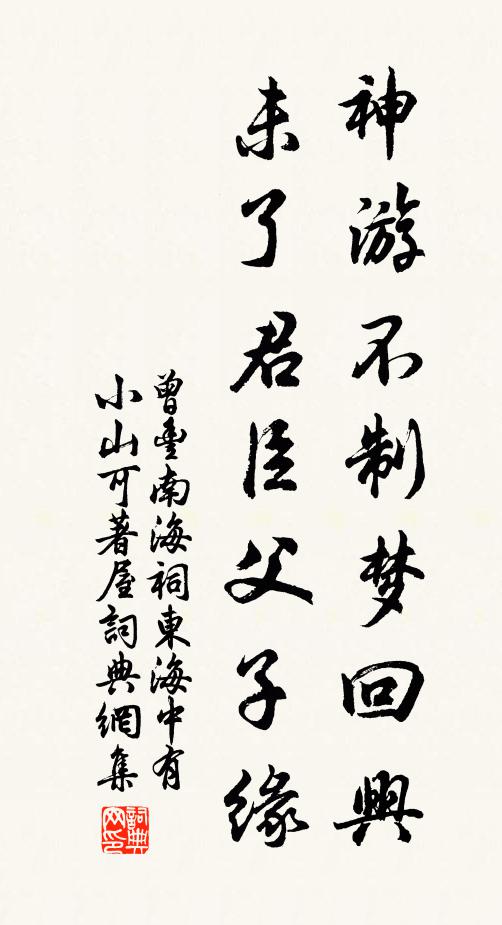 神游不制梦回興
未了君臣父子緣
曾豐南海祠東海中有
小山可著屋詞典網集
詞典
网印